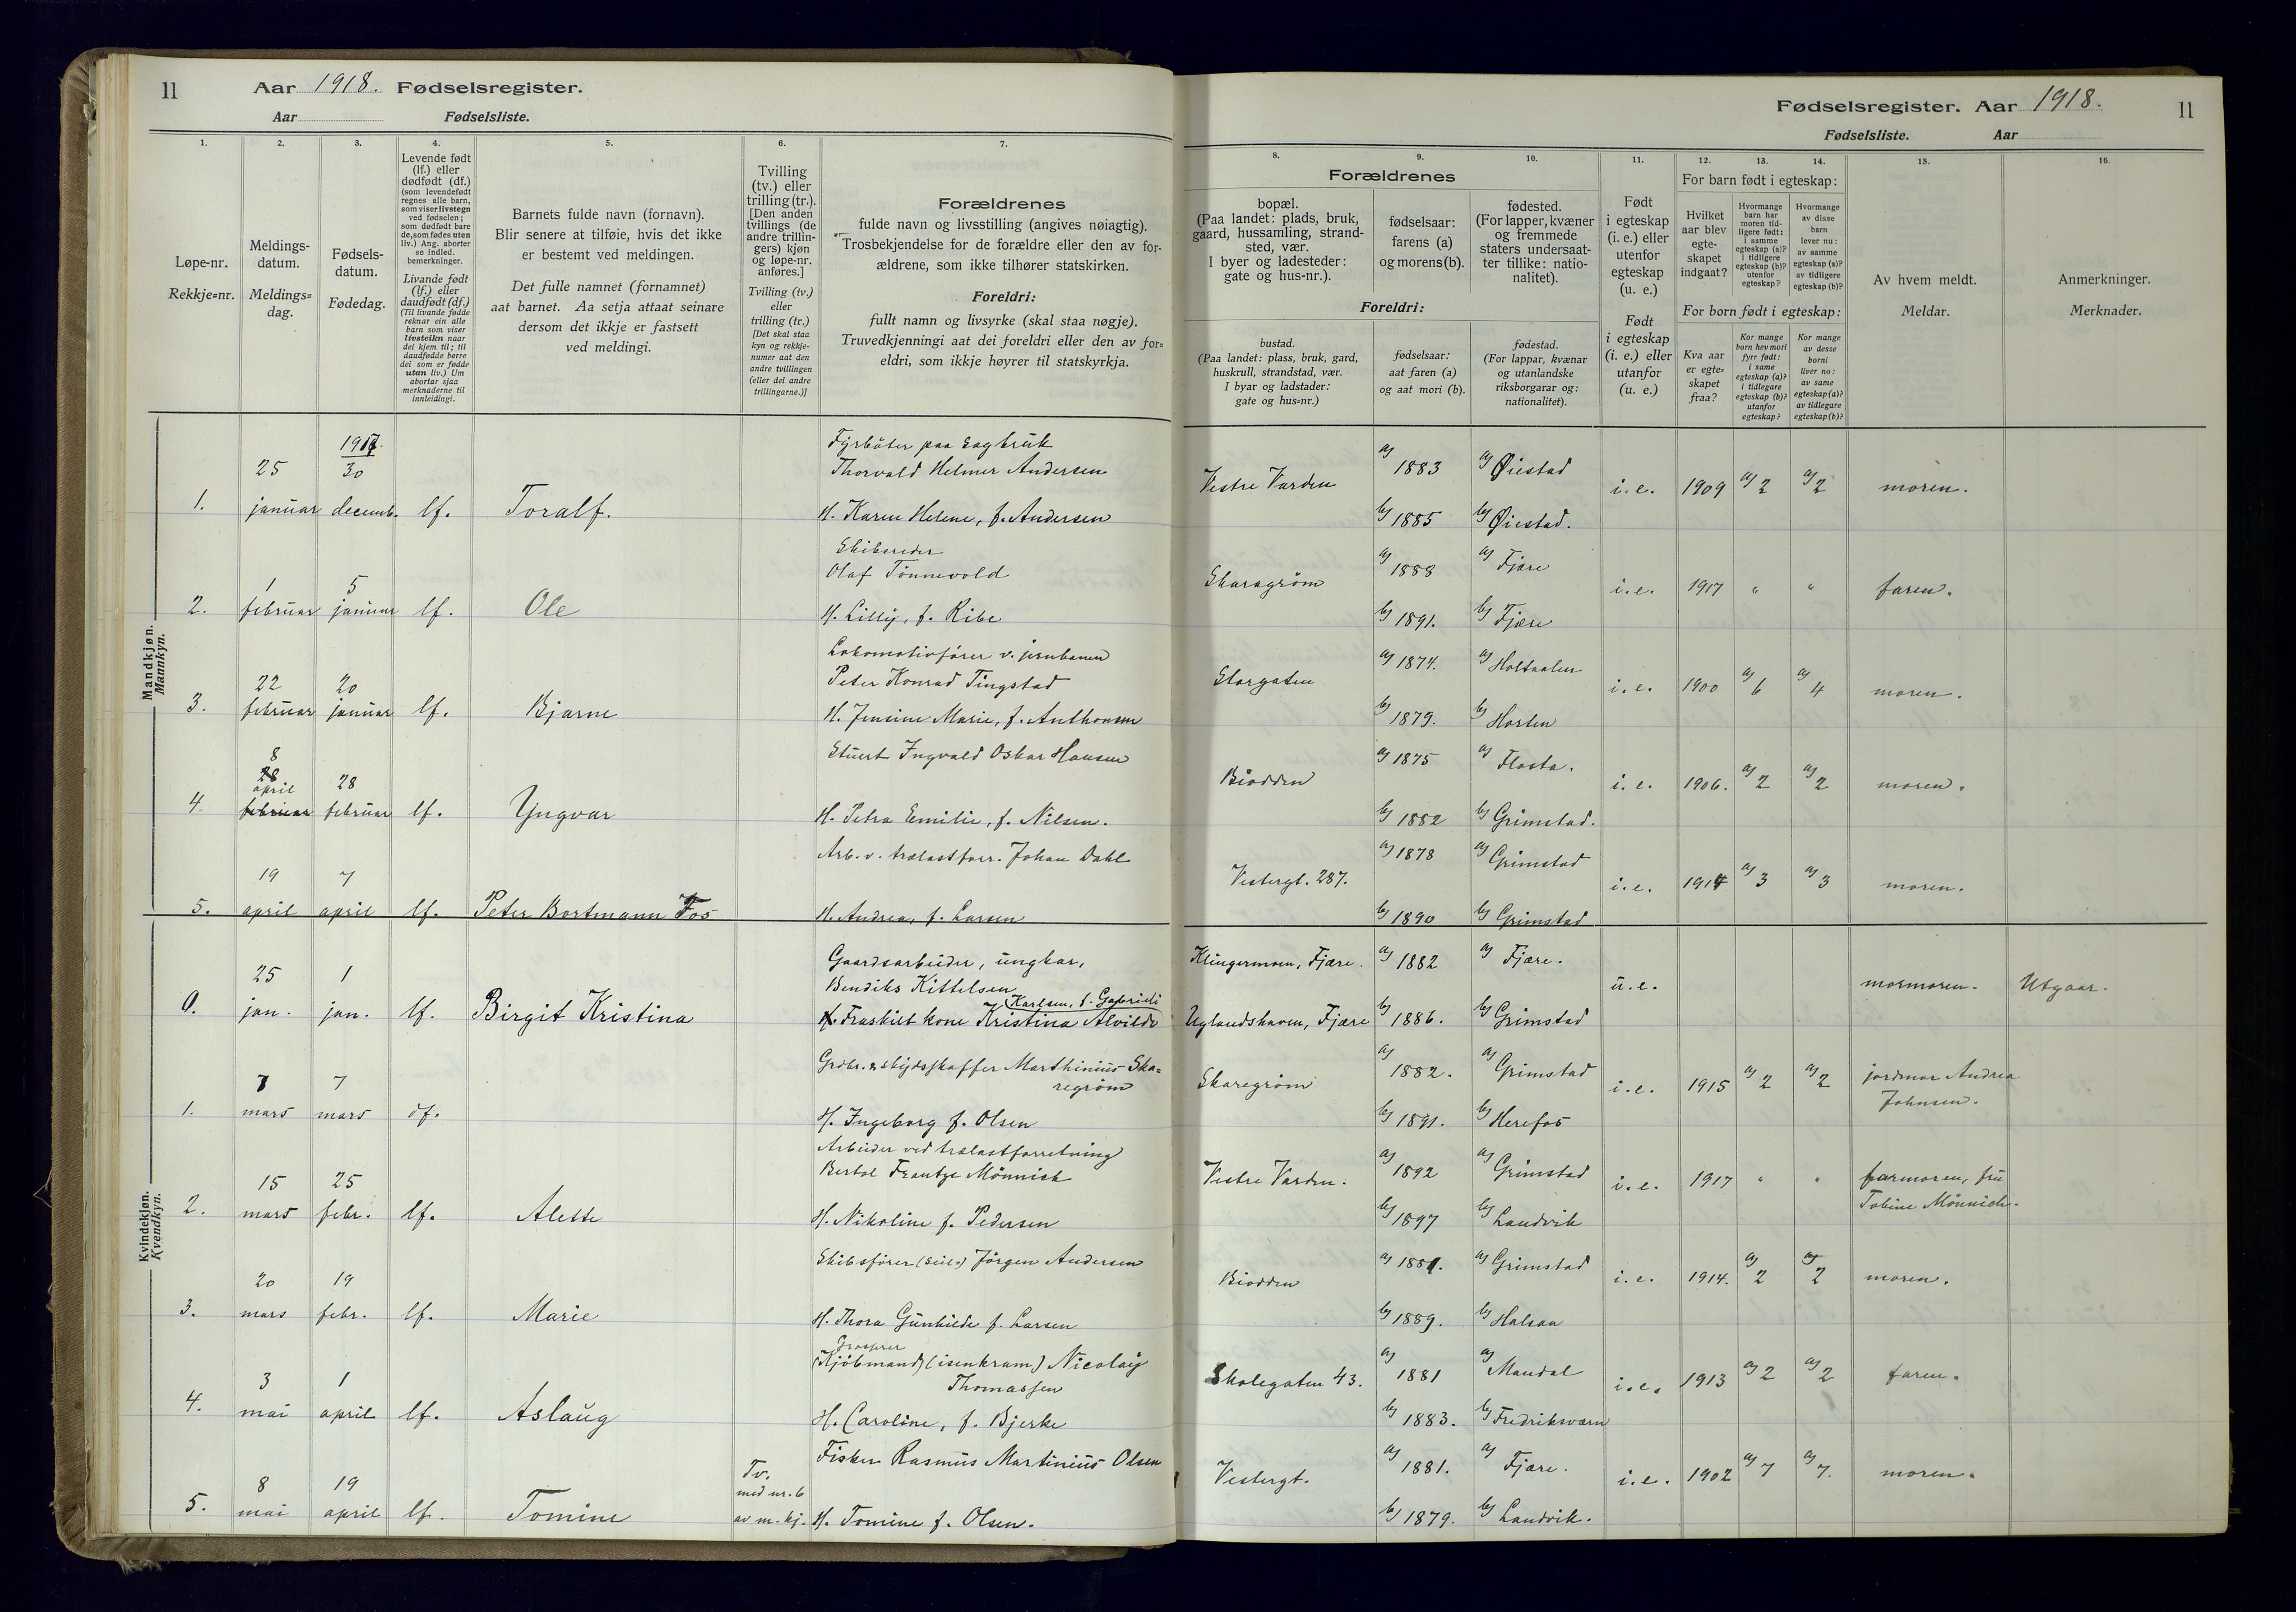 11 Aar 1918. Fødselsregister.
Aar Fødselsliste.
1. 2. 3. 4. 5. 6. 7.
Løpe-nr.
Rekkje=nr.
Meldings-
datum.
Meldings=
dag.
Fødsels-
datum.
Fødedag.
Levende født
(lf.) eller
dødfødt (df.)
(som levendefødt
regnes alle barn,
som viser livstegn
ved fødselen;
som dødfødt bare
de, som fødes uten
liv.) Ang. aborter
se indled.
bemerkninger.
Livande født
(lf.) eller
daudfødt (df.)
(Til livande fødde
reknar ein alle
barn som viser
livsteikn naar
dei kjem til; til
daudfødde berre
dei som er fødde
utan liv.) Um
abortar sjaa
merknaderne til
innleidingi.
Barnets fulde navn (fornavn).
Blir senere at tilføie, hvis det ikke
er bestemt ved meldingen.
Det fulle namnet (fornamnet)
aat barnet. Aa setja attaat seinare
dersom det ikkje er fastsett
ved meldingi.
Tvilling
(tv.) eller
trilling (tr.).
[Den anden
tvillings (de
andre trillin-
gers) kjøn
og løpe-nr.
anføres.]
Tvilling (tv.)
eller
trilling (tr.)
[Det skal staa
kyn og rekkje-
numer aat den
andre tvillingen
(eller dei andre
trillingarne.)]
Forældrenes
fulde navn og livsstilling (angives nøiagtig).
Trosbekjendelse for de forældre eller den av for-
ældrene, som ikke tilhører statskirken.
Foreldri:
fullt namn og livsyrke (skal staa nøgje).
Truvedkjenningi aat dei foreldri eller den av for=
eldri, som ikkje høyrer til statskyrkja.
Mandkjøn.
Mannkyn.
1917.
25 30 Fyrbøter paa sagbruk
Thorvald Helmer Andersen
1. januar decemb. lf. Toralf. H. Karen Helene, f. Andersen
Skibsreder
1 5 Olaf Tønnevold
2. februar januar lf. Ole H. Lilly, f. Ribe
Lokomotivfører v. jernbanen
22 20 Peter Konrad Tingstad
3. februar januar lf. Bjarne H. Jensine Marie, f. Anthonsen
8
28 Stuert Ingvald Oskar Hansen
april 28
4. februar februar lf. Yngvar H. Petra Emilie, f. Nilsen.
19 7 Arb. v. trælastforr. Johan Dahl
5. april april lf. Peter Bortmann Fos H. Andrea, f. Larsen
Kvindekjøn.
Kvendkyn.
Gaardsarbeider, ungkar,
25 1 Bendiks Kittelsen
Karlsen, f. Gabrieli
0. jan. jan. lf. Birgit Kristina H. Fraskilt kone Kristina Alvilde
Grdbr. & skydsskaffer Marthinius Ska=
7 7 regrøm
1. mars mars df. H. Ingeborg f. Olsen
Arbeider ved trælastforretning
15 25 Bertol Frantze Mönnich
2. mars febr. lf. Alette H. Nikoline f. Pedersen
20 19 Skibsfører (Seil=) Jörgen Andersen
3. mars febr. lf. Marie H. Thora Gunhilde f. Larsen
Grosserer
3 1 (Kjöbmand) (isenkram) Nicolay
Thomassen
4. mai april lf. Aslaug H. Caroline, f. Bjerke
8 19 Tv. Fisker Rasmus Martinius Olsen
med nr. 6
5. mai april lf. Tomine av m. kj. H. Tomine f. Olsen.
Fødselsregister. Aar 1918. 11
Fødselsliste. Aar
8. 9. 10. 11. 12. 13. 14. 15. 16.
Forældrenes
bopæl.
(Paa landet: plads, bruk,
gaard, hussamling, strand-
sted, vær.
I byer og ladesteder:
gate og hus-nr.).
fødselsaar:
farens (a)
og morens (b).
fødested.
(For lapper, kvæner
og fremmede
staters undersaat-
ter tillike: natio-
nalitet).
Foreldri:
bustad.
(Paa landet: plass, bruk, gard,
huskrull, strandstad, vær.
I byar og ladstader:
gate og hus=nr.)
fødselsaar:
aat faren (a)
og aat mori (b).
fødestad.
(For lappar, kvænar
og utanlandske
riksborgarar og:
nationalitet).
Født
i egteskap
(i. e.) eller
utenfor
egteskap
(u. e.)
Født
i egteskap
(i. e.) eller
utanfor
(u. e.)
For barn født i egteskap:
Hvilket
aar blev
egte-
skapet
indgaat?
Hvormange
barn har
moren tid-
ligere født:
i samme
egteskap (a)?
i tidligere
egteskap (b)?
utenfor
egteskap?
Hvormange
av disse
barn
lever nu:
av samme
egteskap (a)?
av tidligere
egteskap (b)?
For born født i egteskap:
Kva aar
er egte=
skapet
fraa?
Kor mange
born hev mori
fyrr født:
i same
egteskap (a)?
i tidlegare
egteskap (b)?
utanfor
egteskap?
Kor mange
av desse
borni
liver no:
av same
egteskap (a)?
av tidlegare
egteskap (b)?
Av hvem meldt.
Meldar.
Anmerkninger.
Merknader.
Vestre Varden a) 1883 a) Øiestad i. e. 1909 a) 2 a) 2 moren.
b) 1885 b) Øiestad.
Skaragrøm a) 1888 a) Fjære i. e. 1917 " " faren.
b) 1891. b) Fjære
Storgaten a) 1874. a) Holtaalen i. e. 1900 a) 6 a) 4 moren.
b) 1879. b) Horten
Biodden a) 1875 a) Flosta. i. e. 1906. a) 2 a) 2 moren.
b) 1882 b) Grimstad.
Vestergt. 287. a) 1878 a) Grimstad i. e. 1914 a) 3 a) 3 moren.
b) 1890 b) Grimstad
Klingermoen, Fjære. a) 1882 a) Fjære. u. e. mormoren. Utgaar.
Uglandshaven, Fjære b) 1886. b) Grimstad
Skaregrøm a) 1882. a) Grimstad i. e. 1915 a) 2 a) 2 jordmor Andrea
Johnsen.
b) 1891. b) Herefos
Vestre Varden. a) 1892 a) Grimstad i. e. 1917 " " farmoren, fru
Tobine Mönnich.
b) 1897 b) Landvik
Biodden a) 1881. a) Grimstad i. e. 1914. a) 2 a) 2 moren.
b) 1889. b) Halsan
Skolegaten 43. a) 1881 a) Mandal i. e. 1913 a) 2 a) 2 faren.
b) 1883. b) Fredriksværn
Vestergt. a) 1881. a) Fjære. i. e. 1902 a) 7 a) 7. moren.
b) 1879. b) Landvik.